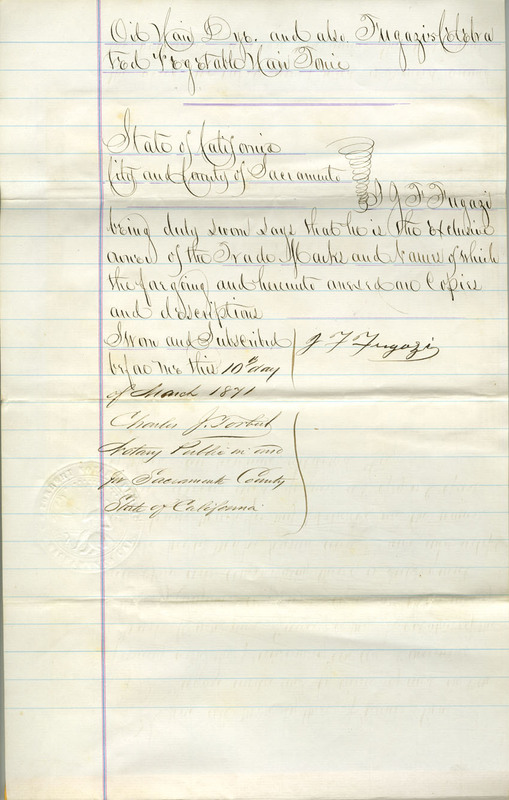 Oil Hair Dye. and also Fugazi's Celebra
ted Vegetable Hair Tonic
State of California
City and County of Sacramento
J. F. Fugazi
being duly sworn says that he is the exclusive
owner of the Trade Marks and Names of which
the forging and hereunto annexed are Copies
and descriptions
Sworn and Subscribed
before me this 10th day
of March 1871
J F Fugazi
Charles J. Torbert
Notary Public in and
for Sacramento County
State of California